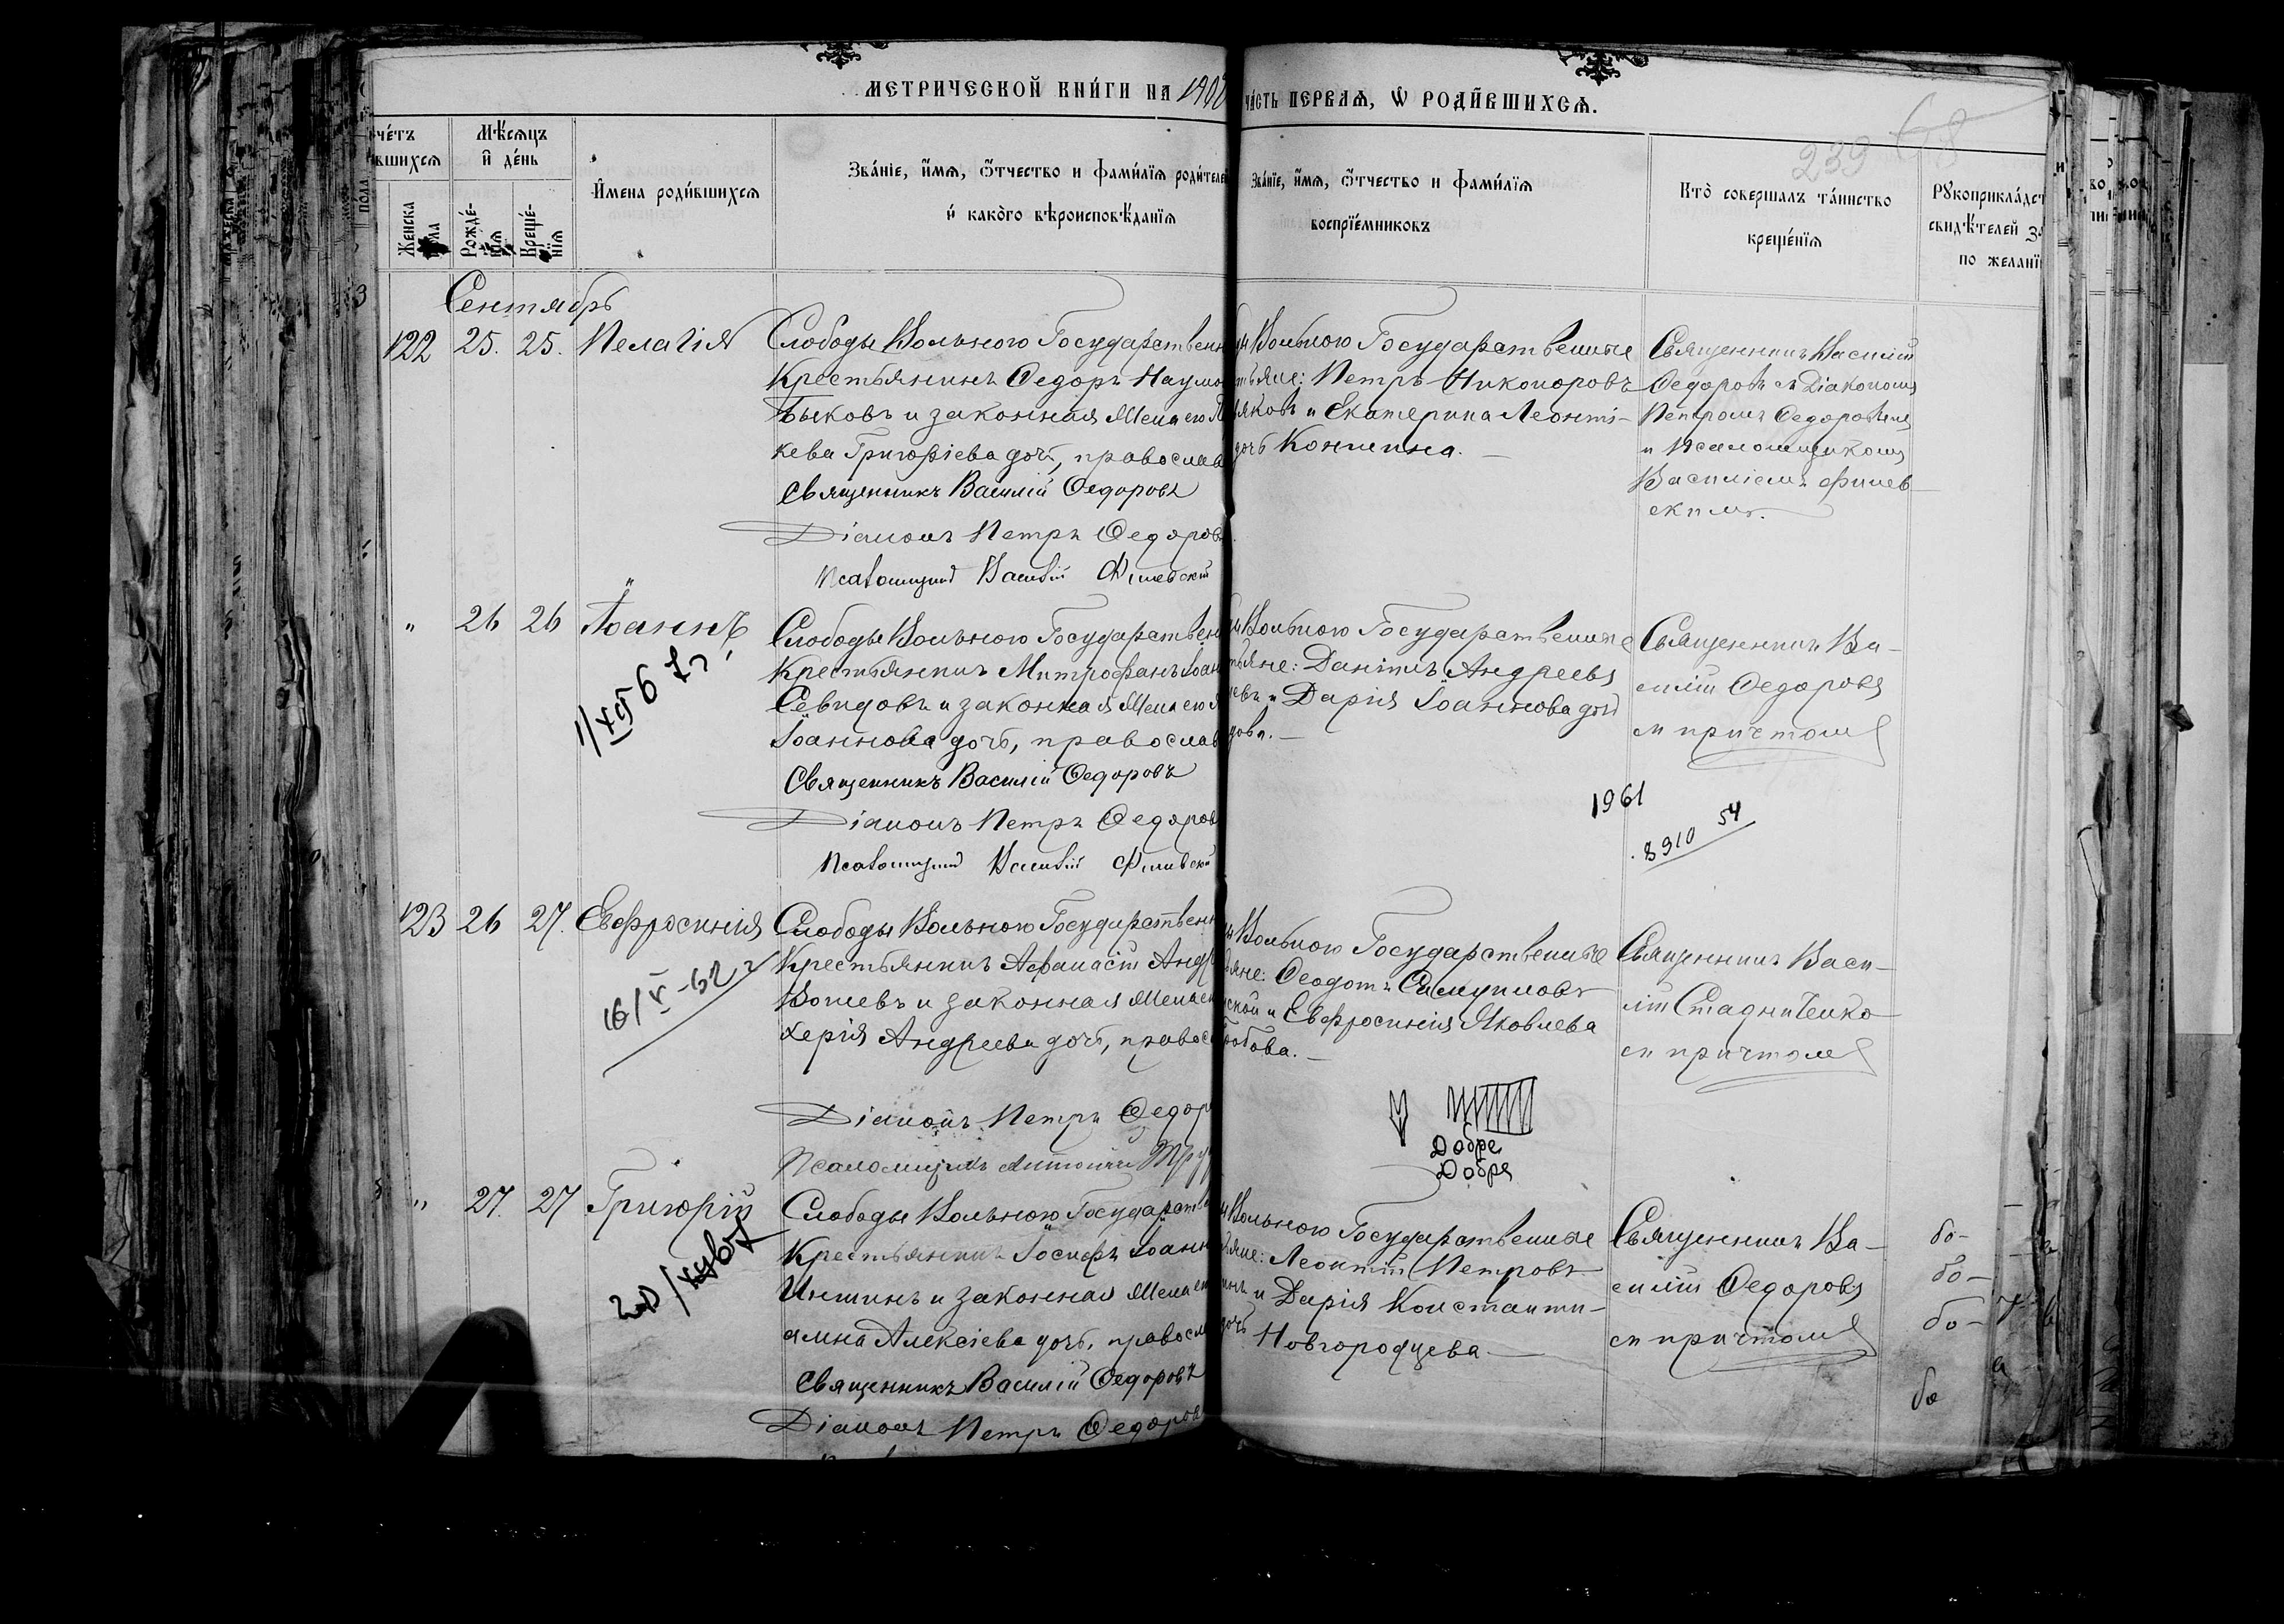 МЕТРИЧЕСКОЙ КНИ́ГИ НА 190
ЧА́СТЬ ПЕРВАѦ, Ѡ҆ РОДИ́ВШИХСѦ.
239
че́тъ
вшихсѧ
Женска
пола
Мѣ́сѧцъ
и҆ де́нь
Рожде́-
нїѧ
Креще́-
нїѧ
И҆мена роди́вшихсѧ
Зва́нїе, и҆́мѧ, ѻ҆́тчество и фами́лїѧ роди́теле
и҆ како́го вѣроисповѣ́данїѧ
Зва́нїе, и҆́мѧ, ѻ҆́тчество и фами́лїѧ
воспрїе́мниковъ
Кто̀ совершалъ та́инство
креще́нїѧ
Рꙋкоприкла́дст
свидѣ́телей за
по желанї
Сентябрь
122 25. 25. Пелагія
Слободы Вольного Государственн
Крестьянинъ Ѳедоръ Наумо
Быковъ и законная жена его
кева Григоріева дочь, православ
Священникъ Василій Ѳедоровъ
Діаконъ Петръ Ѳедоровъ
Псаломщикъ Василій Филевскій
Вольного Государственные
тьяне: Петръ Никоноровъ
яковъ и Екатерина Леонті-
дочь Коншина.
Священникъ Василій
Ѳедоровъ съ Діакономъ
Петромъ Ѳедоровымъ
и Псаломщикомъ
Василіемъ Филев-
скимъ.
" 26 26 Іоаннъ
Слободы Вольного Государствен
Крестьянинъ Митрофанъ Іоан
Севидовъ и законная жена его
Іоаннова дочь, православ
Священникъ Василій Ѳедоровъ
Діаконъ Петръ Ѳедоров
Псаломщикъ Василій Филевскій
Вольного Государственные
тьяне: Даніилъ Андреевъ
евъ и Дарія Іоаннова дочь
дова.
Священникъ Ва-
силій Ѳедоровъ
съ причтомъ
1961
8910 54
123 26 27. Евфросинія
16/V-62 г
Слободы Вольного Государственн
Крестьянинъ Аѳанасій Андр
Вошевъ и законная жена его
херія Андреева дочь, правос
Діаконъ Петръ Ѳедор
Псаломщикъ Антоній Тру
Вольного Государственные
яне: Ѳеодотъ Самуиловъ
ской и Евфросинія Яковлева
бова.
Священникъ Васи-
лій Стадниченко
съ причтомъ
Добре
Добря
" 27. 27 Григорій
Слободы Вольного Государстве
Крестьянинъ Іосифъ Іоанн
Иншинъ и законная жена ег
амна Алексіева дочь, правосл
Священникъ Василій Ѳедоровъ
Діаконъ Петръ Ѳедоров
Вольного Государственные
яне: Леонтій Петровъ
инъ и Дарія Константи-
дочь Новгородцева.
Священникъ Ва-
силій Ѳедоровъ
съ причтомъ
бо-
бо-
бо-
бо